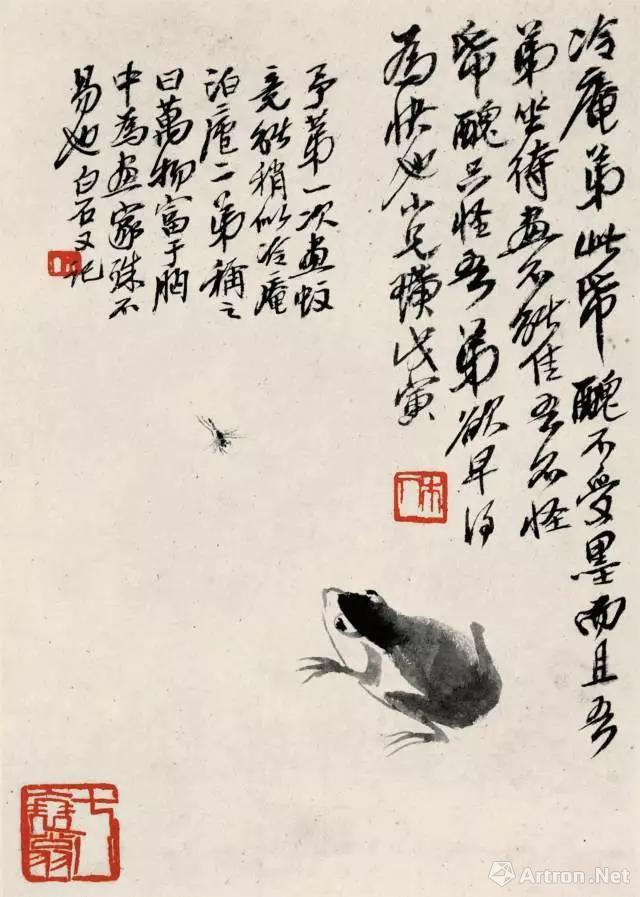 冷庵弟此帋醜不受墨而且吾
弟坐待畫不能佳吾不怪
帋醜只怪吾弟欲早得
為快也小兄璜戊寅
木人
予第一次畫蚊
竟能稍似冷庵
泊廬二弟稱之
曰萬物富于胸
中為畫家殊不
易也白石又記
Artron.Net